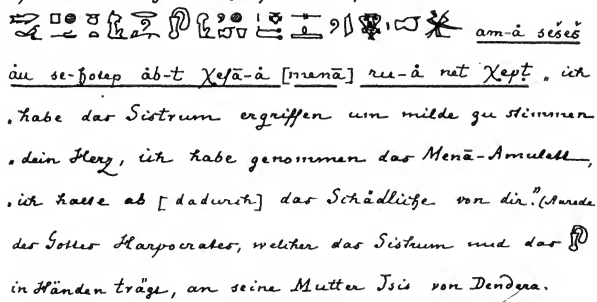 am-å sešeš
åu se-ḥotep åb-t χefā-å [menā] ru-å net χept „ich
„habe das Sistrum ergriffen um milde zu stimmen
„dein Herz, ich habe genommen das Menā-Amulett,
„ich halte ab [dadurch] das Schädliche von dir.“ (Anrede
des Gottes Harpocrates, welcher das Sistrum und das
in Händen trägt, an seine Mutter Isis von Dendera.